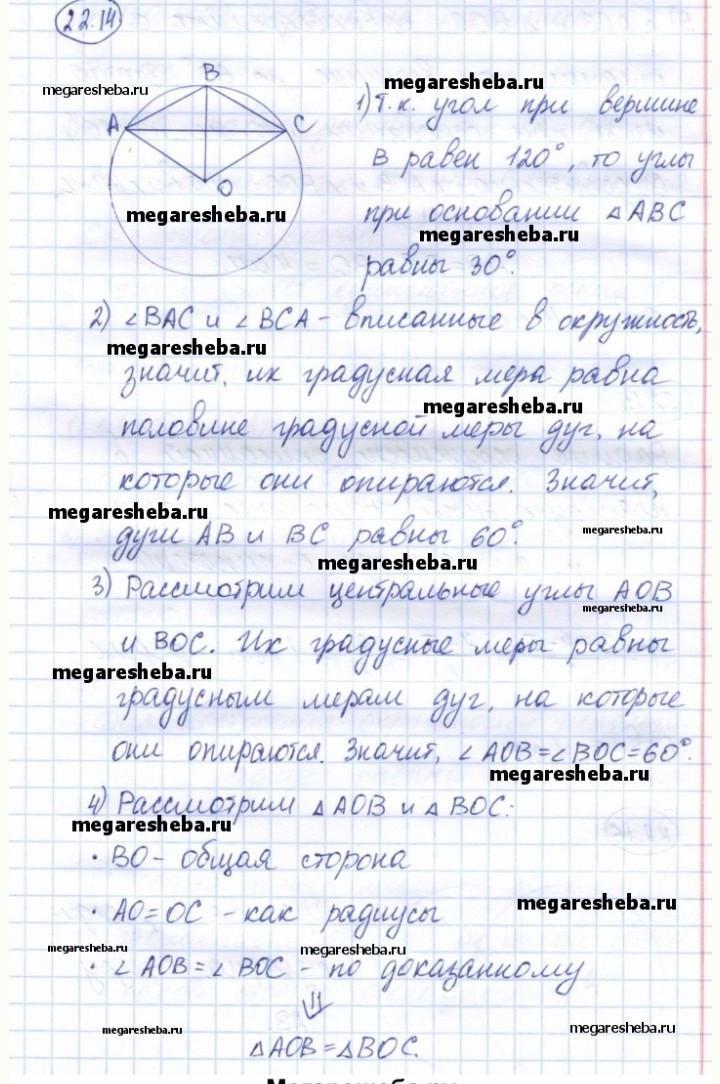 22.14
B
megaresheba.ru
megaresheba.ru
A
C
O
1) Т.к. угол при вершине
В равен 120°, то углы
megaresheba.ru
при основании △ABC
megaresheba.ru
равны 30°.
2) ∠BAC и ∠BCA - вписанные в окружность,
megaresheba.ru
значит, их градусная мера равна
megaresheba.ru
половине градусной меры дуг, на
которые они опираются. Значит,
megaresheba.ru
дуги AB и BC равны 60°.
megaresheba.ru
megaresheba.ru
3) Рассмотрим центральные углы AOB
megaresheba.ru
и BOC. Их градусные меры равны
megaresheba.ru
градусным мерам дуг, на которые
они опираются. Значит, ∠AOB=∠BOC=60°.
megaresheba.ru
4) Рассмотрим △AOB и △BOC:
megaresheba.ru
• BO - общая сторона
megaresheba.ru
• AO=OC - как радиусы
megaresheba.ru
megaresheba.ru
• ∠AOB=∠BOC - по доказанному
⇓
megaresheba.ru
megaresheba.ru
△AOB=△BOC.
Megaresheba.ru